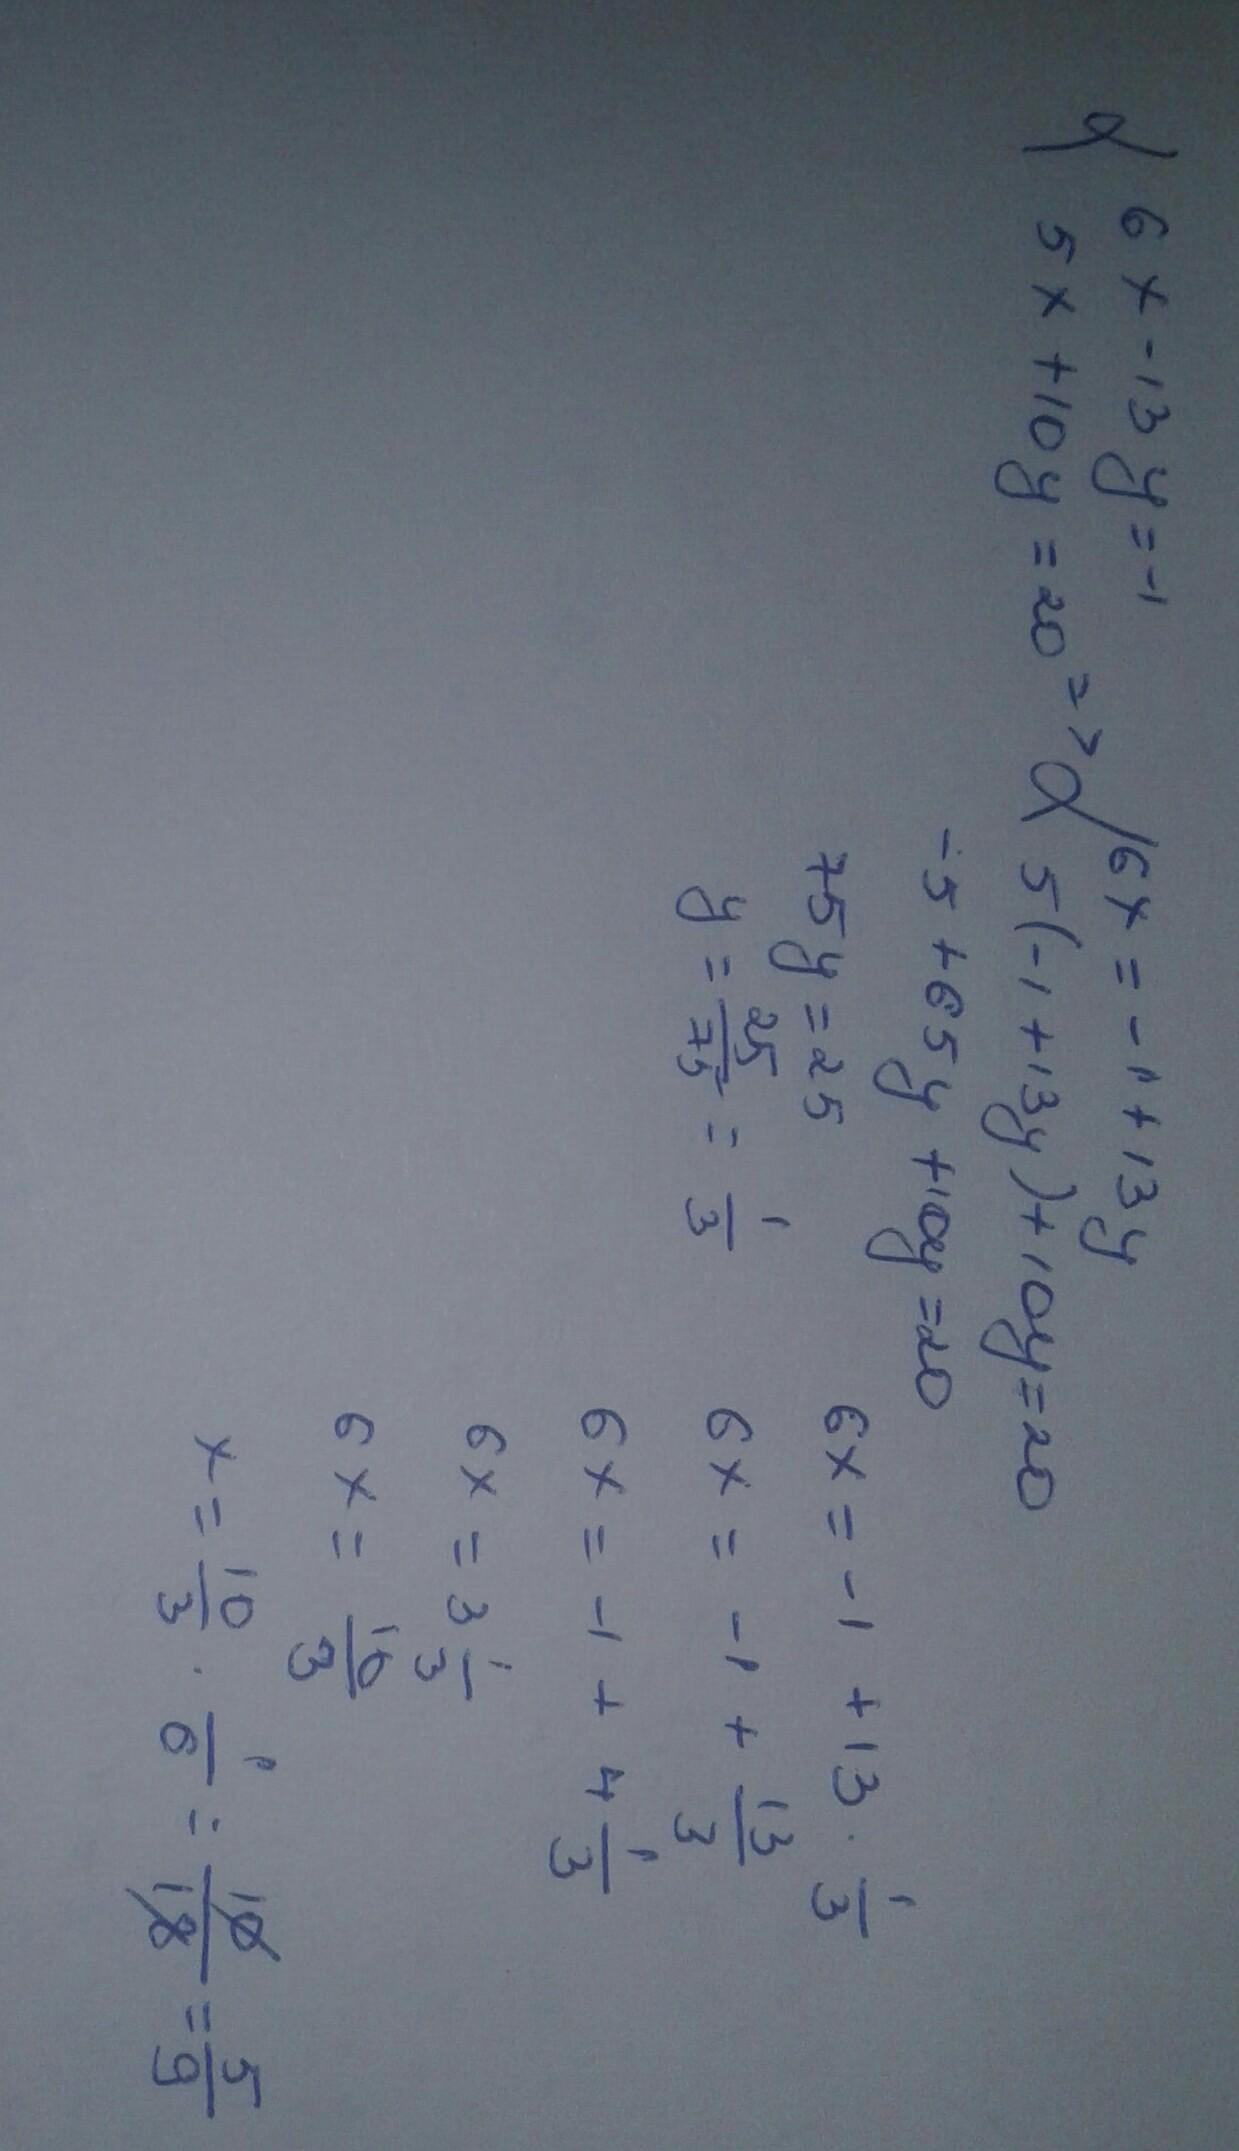 6x - 13y = -1
5x + 10y = 20 =>
6x = -1 + 13y
5(-1 + 13y) + 10y = 20
-5 + 65y + 10y = 20
75y = 25
y = 25/75 = 1/3
6x = -1 + 13 · 1/3
6x = -1 + 13/3
6x = -1 + 4 1/3
6x = 3 1/3
6x = 10/3
x = 10/3 · 1/6 = 10/18 = 5/9